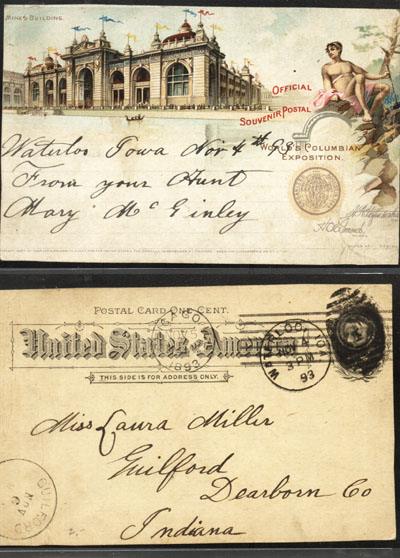 MINES BUILDING.
OFFICIAL
SOUVENIR POSTAL
WORLD'S COLUMBIAN
EXPOSITION.
Waterloo Iowa Nov 4th 93
From your Hunt
Mary McGinley
POSTAL CARD ONE CENT.
United States of America
THIS SIDE IS FOR ADDRESS ONLY.
1893
WATERLOO, IOWA
NOV 4
3 PM
93
Miss Laura Miller
Guilford
Dearborn Co
Indiana
GUILFORD
NOV
6